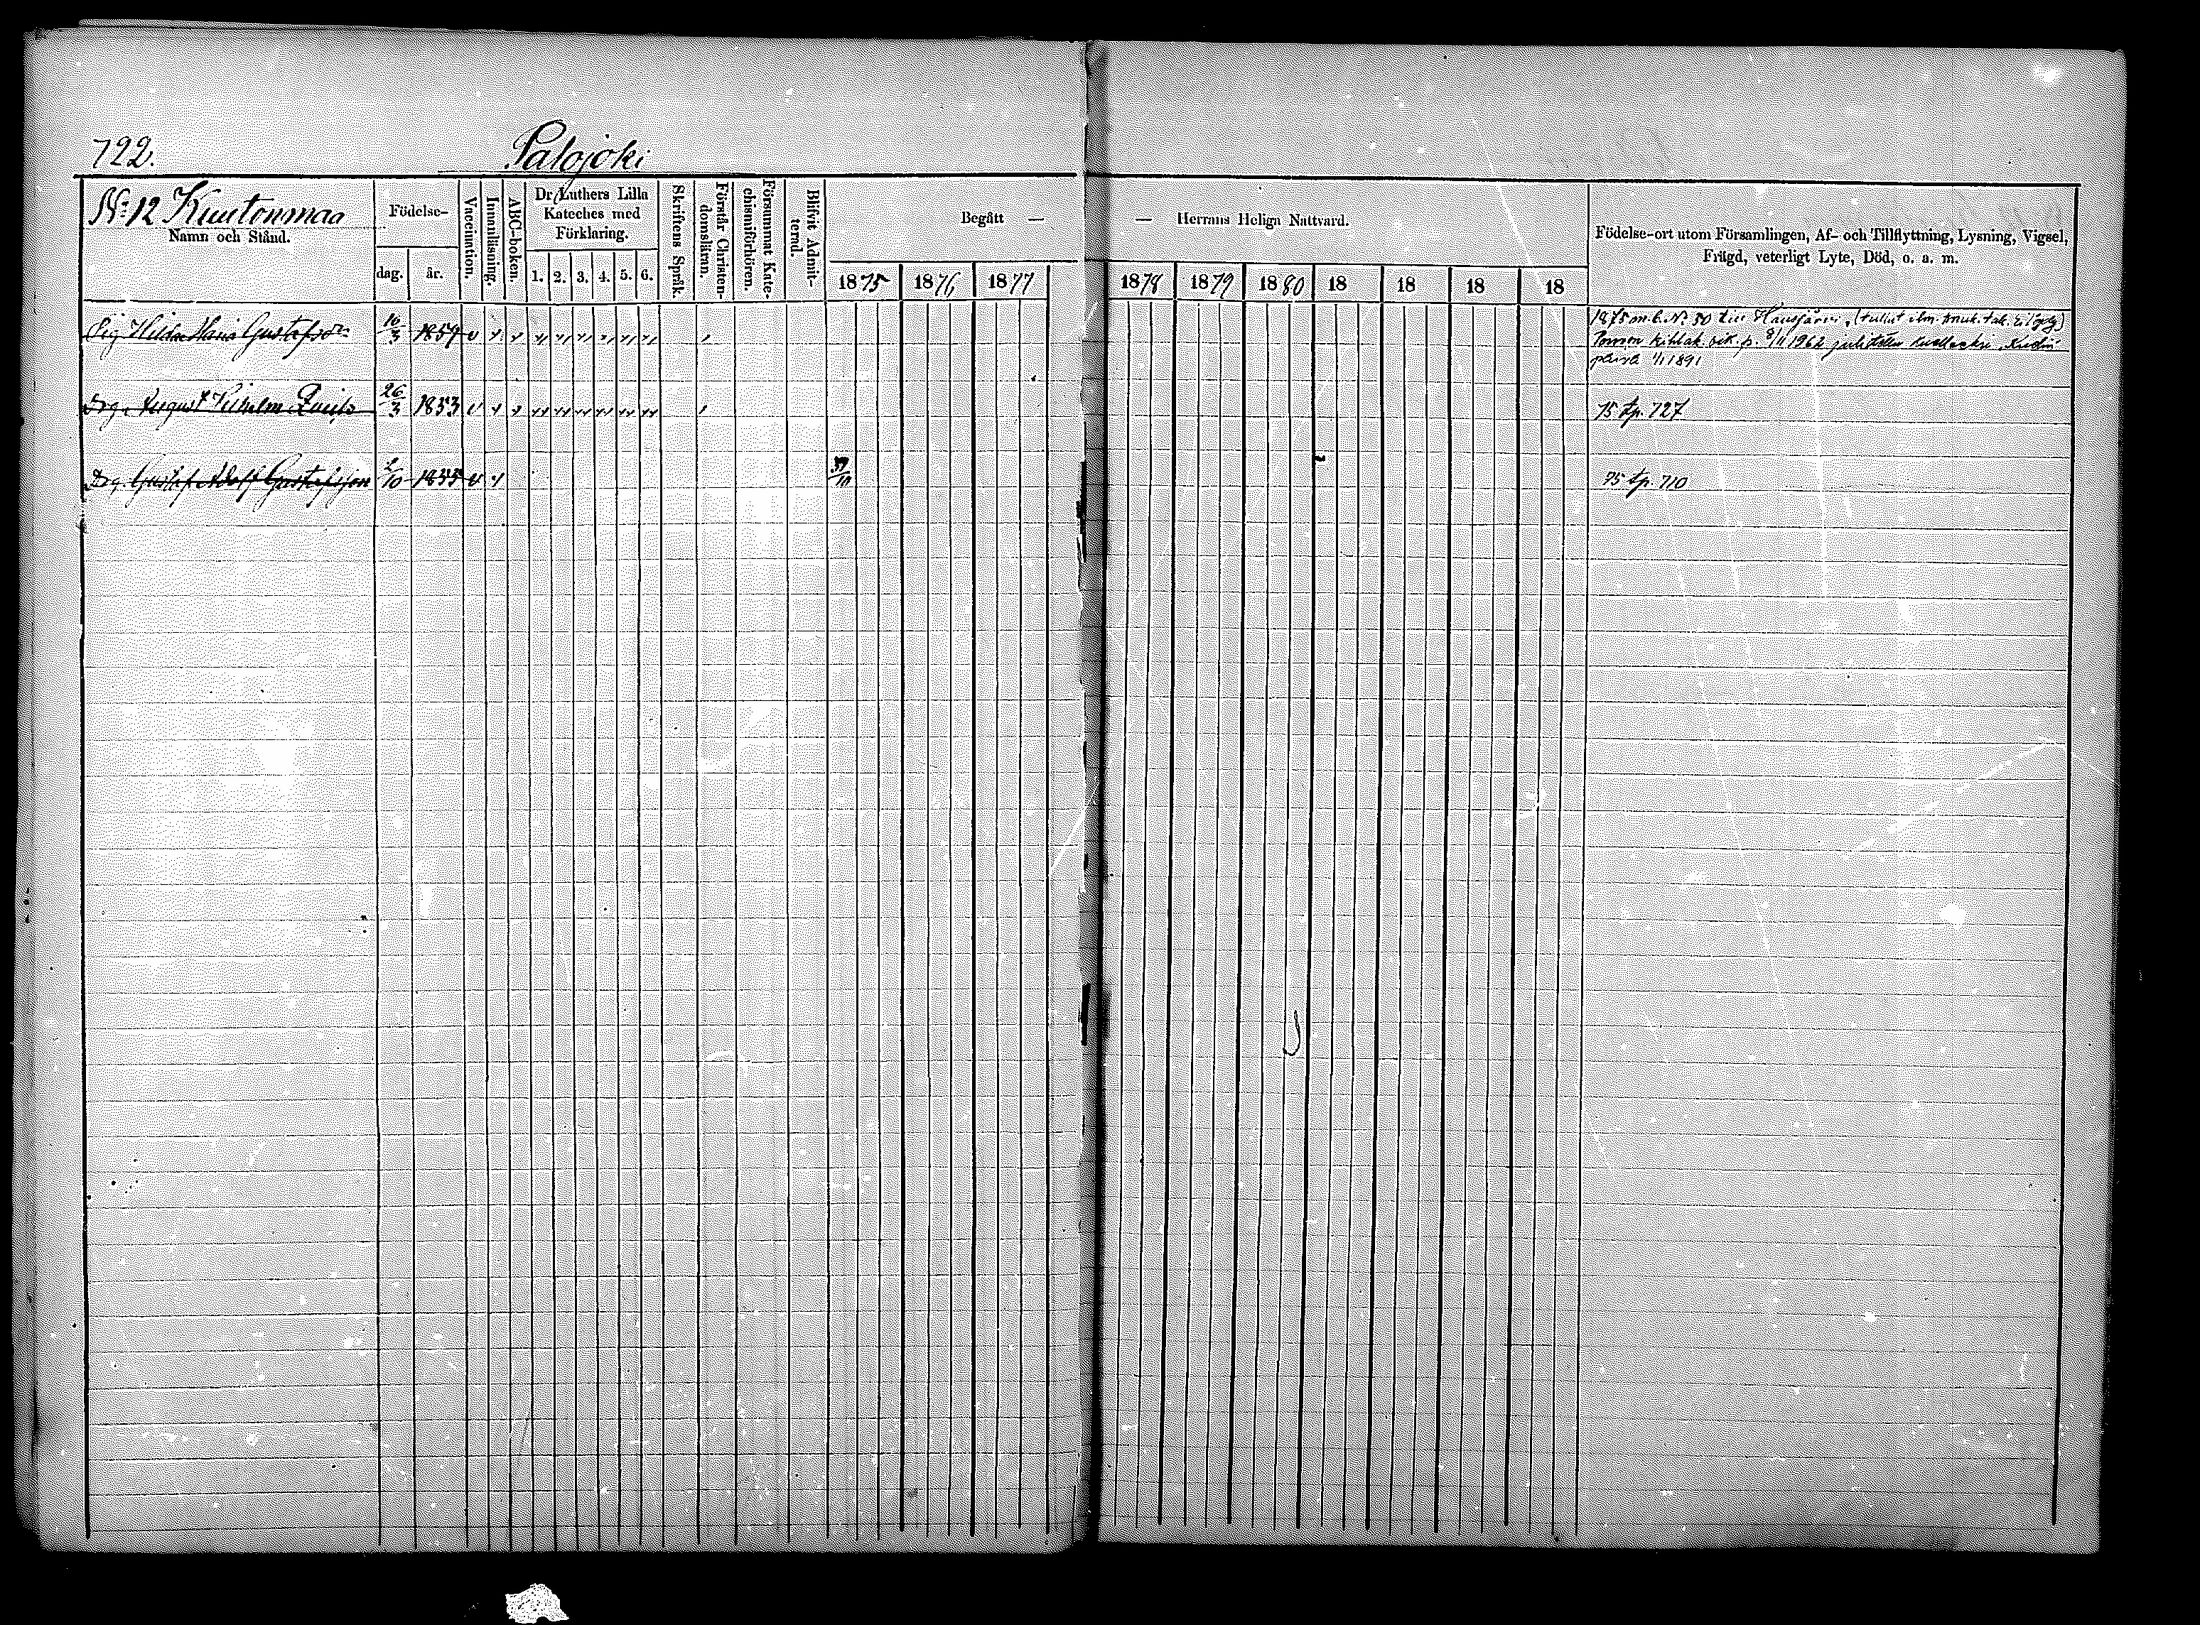 722.
Palojoki
№ 12 Kuutonmaa
Namn och Stånd.
Födelse-
dag.
år.
Vaccination.
Innanläsning.
ABC-boken.
Dr Luthers Lilla
Kateches med
Förklaring.
1. 2. 3. 4. 5. 6.
Skriftens Språk.
Förstår Christen-
domsläran.
Försummat Kate-
chismiförhören.
Blifvit Admit-
terad.
Begått —
— Herrans Heliga Nattvard.
1875 1876 1877
1878 1879 1880 18 18 18 18
Födelse-ort utom Församlingen, Af- och Tillflyttning, Lysning, Vigsel,
Frägd, veterligt Lyte, Död, o. a. m.
Pig Hilda Maria Gustafsdr 10/3 1854 v
1875 m. b. № 50 till Hausjärvi
1/1 1891
Drg. August Vilhelm 26/3 1853 v
75 tp. 727
Drg. Gustaf Adolf Gustafsson 2/10 1855 v
75 tp. 710